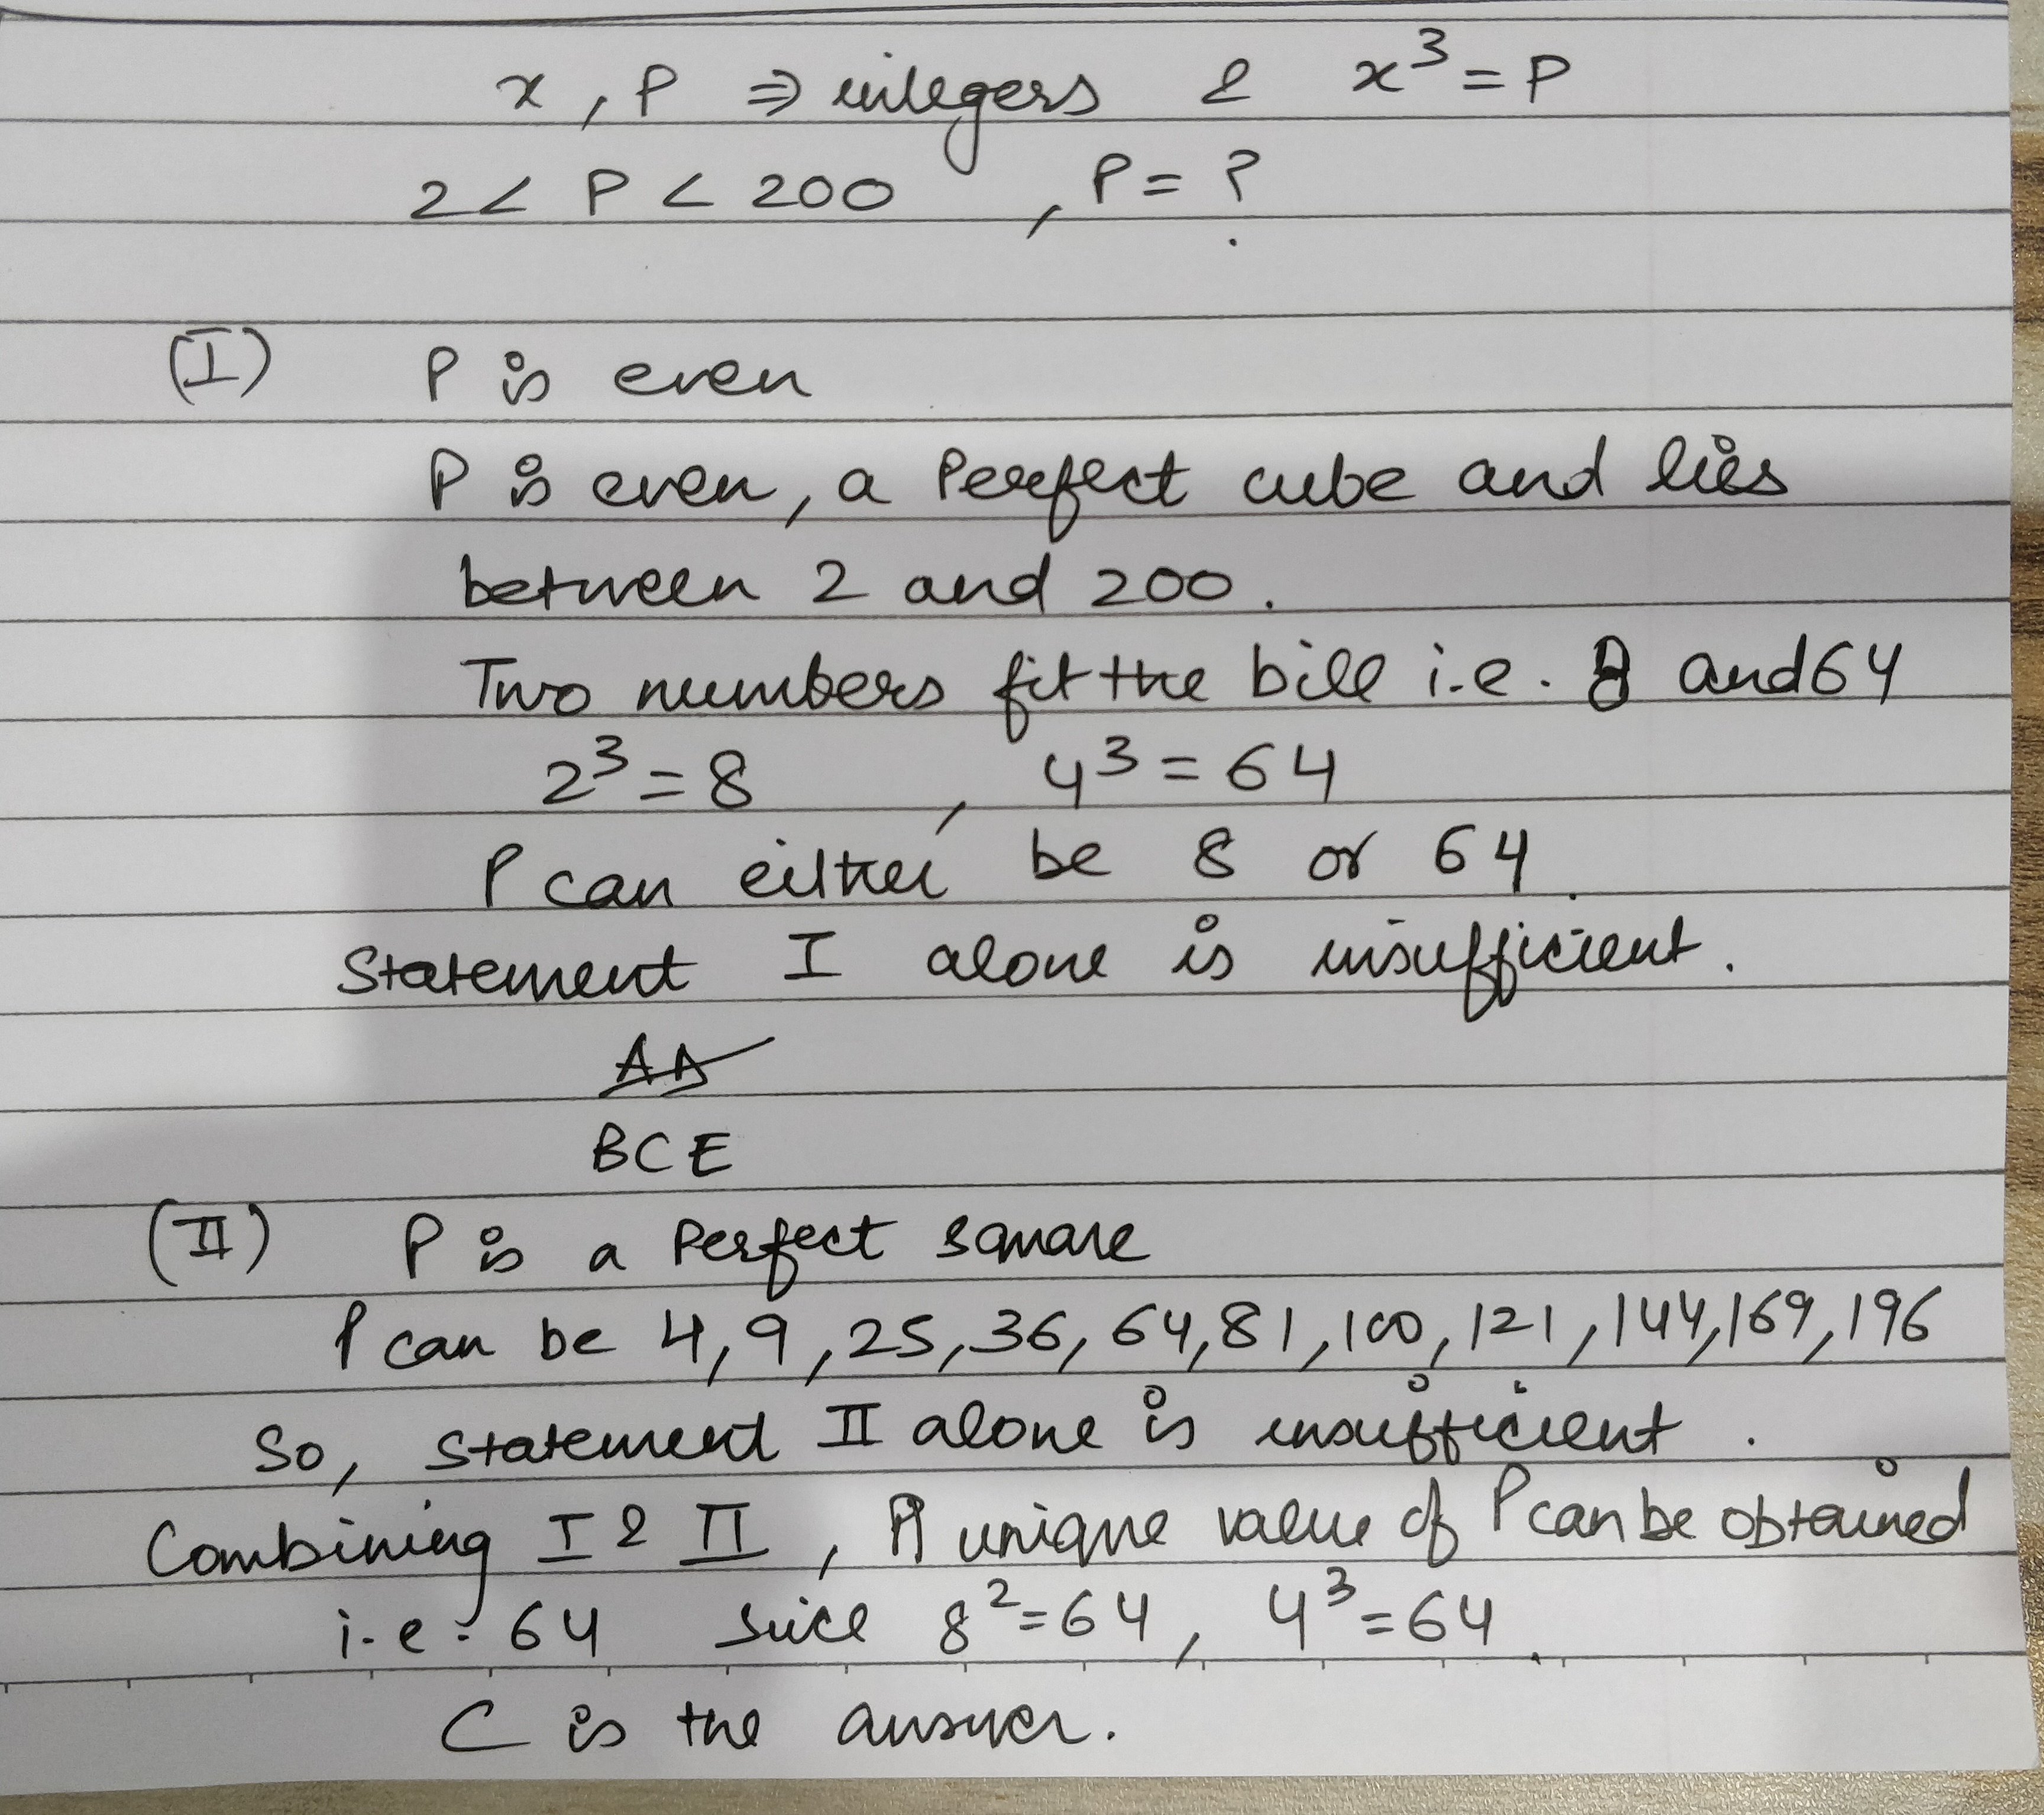 x, P ⇒ integers & x³ = P
2 < P < 200 , P = ?
(I) P is even
P is even, a Perfect cube and lies
between 2 and 200.
Two numbers fit the bill i.e. 8 and 64
2³ = 8 , 4³ = 64
P can either be 8 or 64.
Statement I alone is insufficient.
AD
BCE
(II) P is a Perfect square
P can be 4, 9, 25, 36, 64, 81, 100, 121, 144, 169, 196
So, statement II alone is insufficient.
Combining I & II, A unique value of P can be obtained
i.e. 64 since 8² = 64, 4³ = 64.
C is the answer.